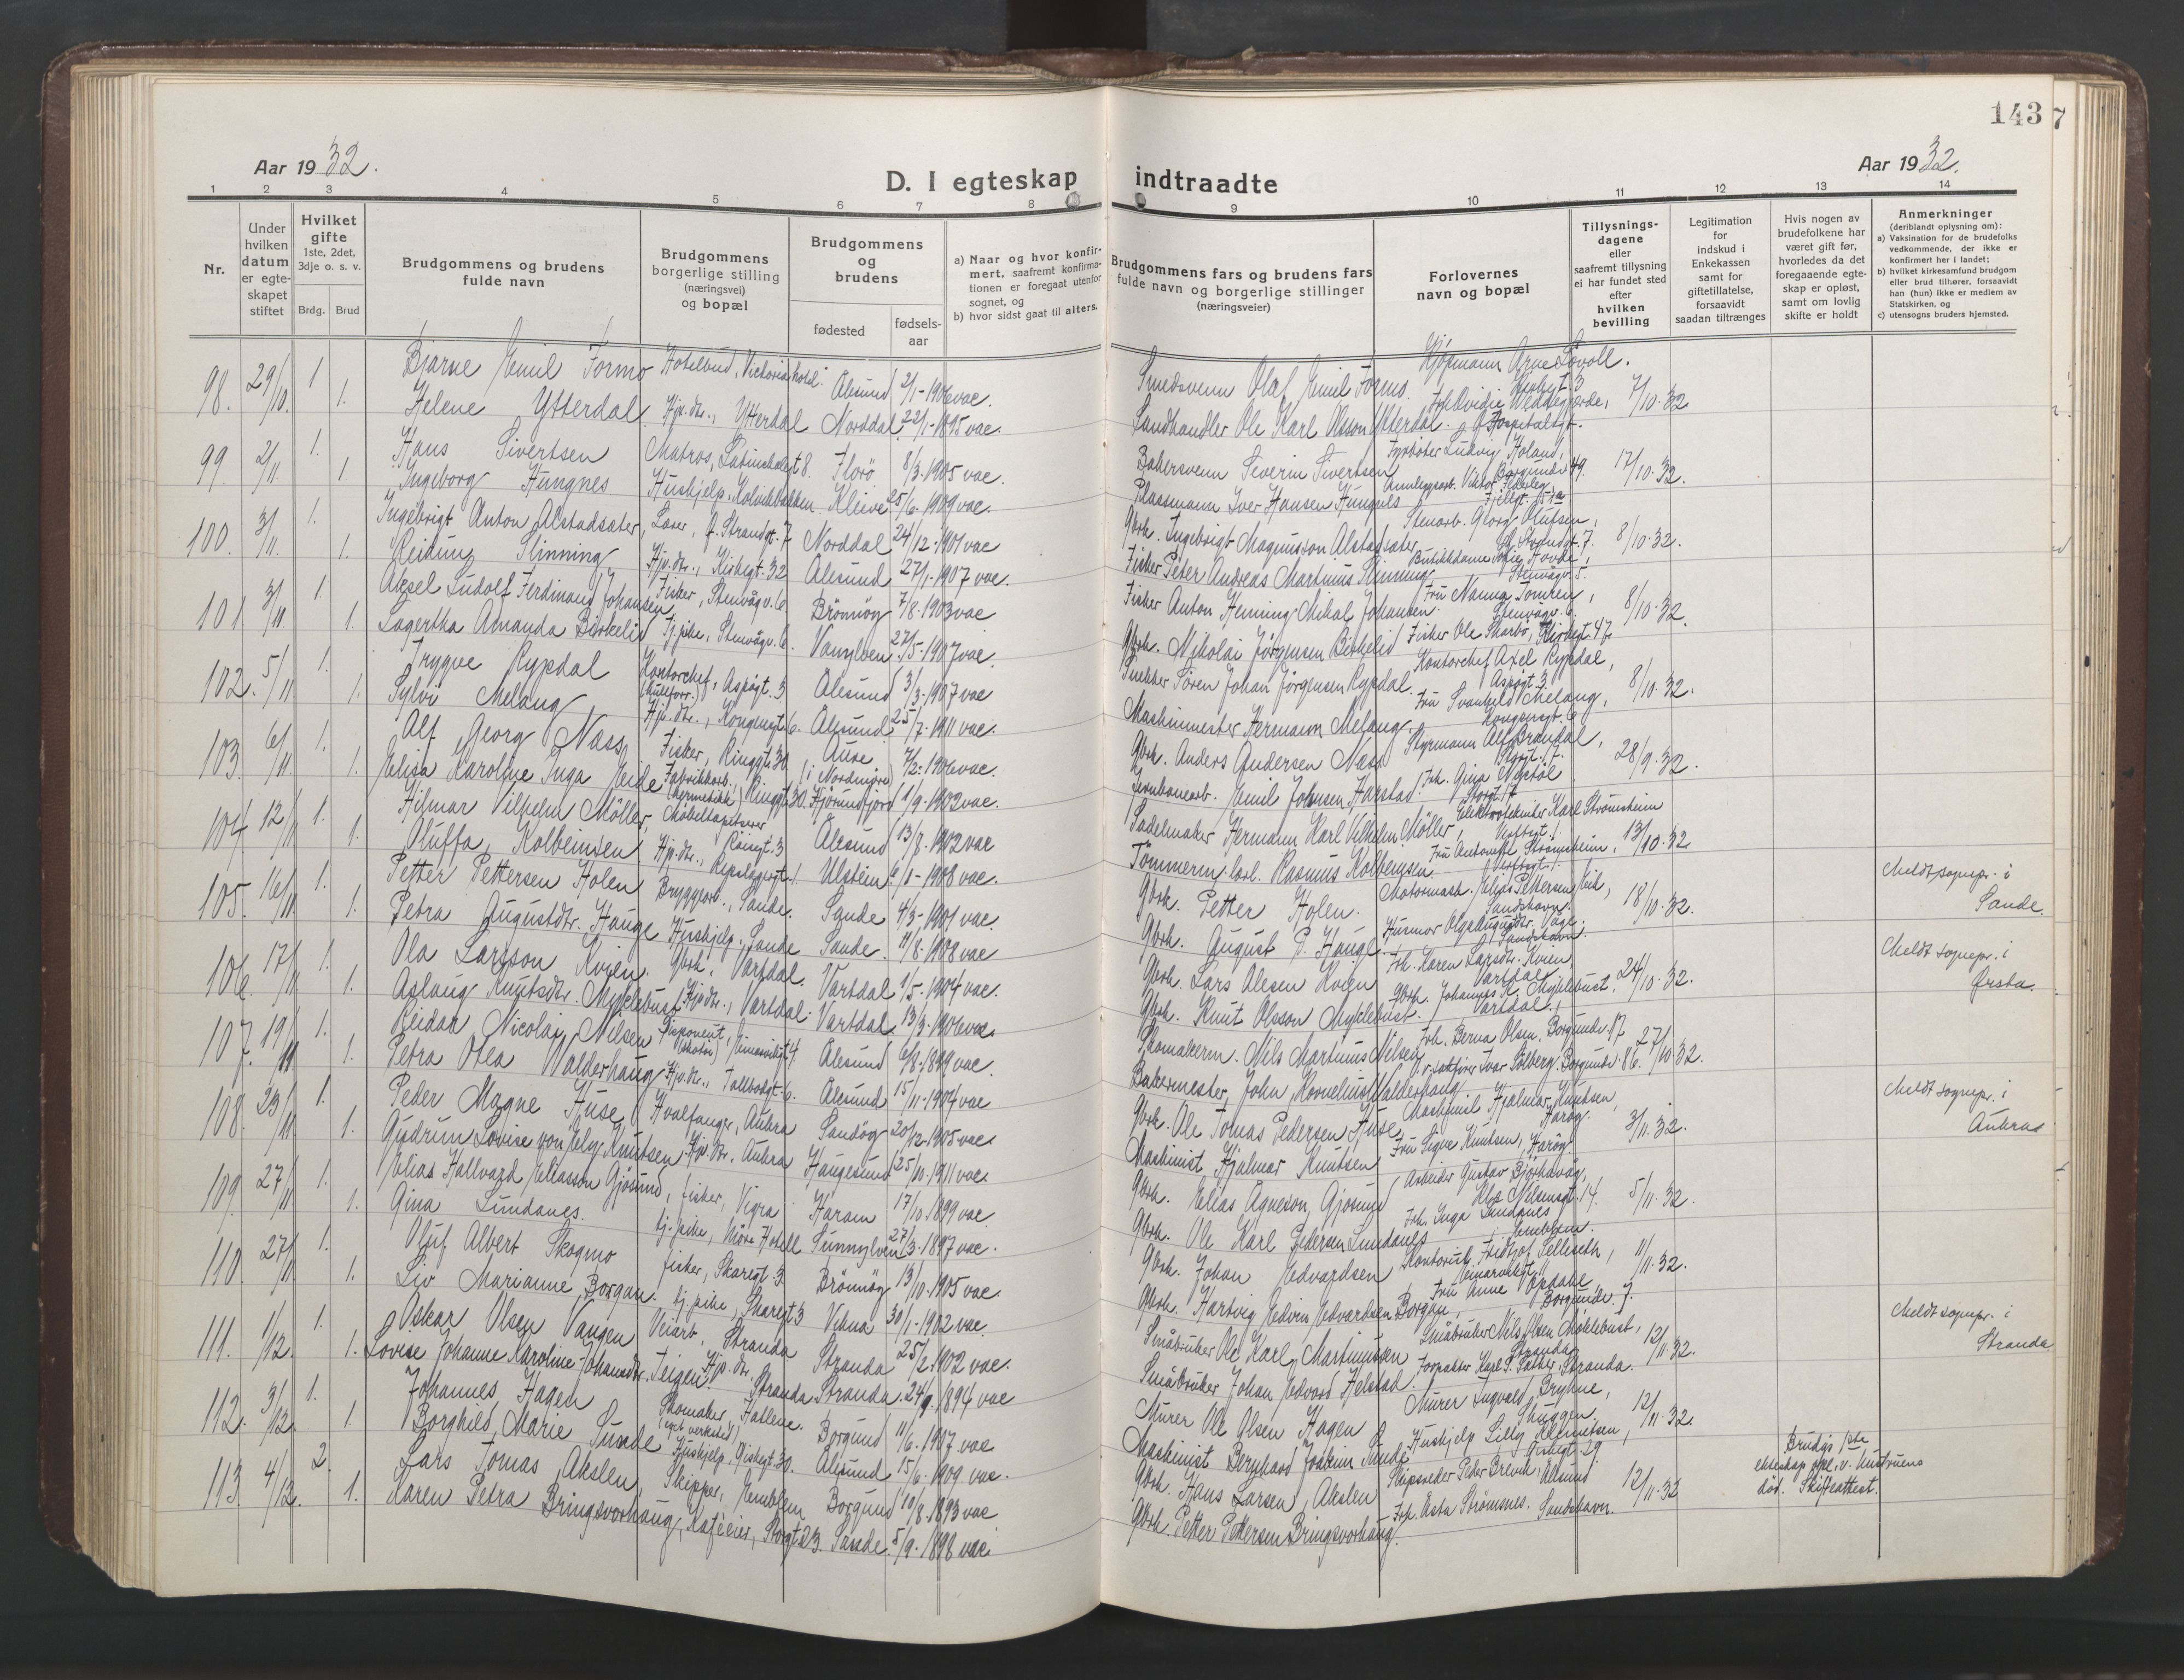 143
7
Aar 1932.
D. I egteskap indtraadte
Aar 1932.
1 2 3 4 5 6 7 8 9 10 11 12 13 14
Nr.
Under hvilken datum er egteskapet stiftet
Hvilket gifte 1ste, 2det, 3dje o. s. v.
Brdg. Brud
Brudgommens og brudens fulde navn
Brudgommens borgerlige stilling (næringsvei) og bopæl
Brudgommens og brudens
fødested
fødsels-aar
a) Naar og hvor konfirmert, saafremt konfirmationen er foregaat utenfor sognet, og
b) hvor sidst gaat til alters.
Brudgommens fars og brudens fars fulde navn og borgerlige stillinger (næringsveier)
Forlovernes navn og bopæl
Tillysnings-dagene eller saafremt tillysning ei har fundet sted efter hvilken bevilling
Legitimation for indskud i Enkekassen samt for giftetillatelse, forsaavidt saadan tiltrænges
Hvis nogen av brudefolkene har været gift før, hvorledes da det foregaaende egteskap er opløst, samt om lovlig skifte er holdt
Anmerkninger (deriblandt oplysning om):
a) Vaksination for de brudefolks vedkommende, der ikke er konfirmert her i landet;
b) hvilket kirkesamfund brudgom eller brud tilhører, forsaavidt han (hun) ikke er medlem av Statskirken, og
c) utensogns bruders hjemsted.
98. 29/10. 1 Bjarne Emil Formo Hotelbud, Victoria hotel. Ålesund 2/1-1906 vac. Smedsvenn Olaf Emil Formo. Kjøpmann Arne Søvoll. Kirkegt. 3 7/10-32
1. Helene Ytterdal Hjv. dtr., Ytterdal Norddal 22/1-1895 vac. Landhandler Ole Karl Olsson Ytterdal. Frk. Ovidie Weddegjerde, Hospitalsgt.
99. 2/11. 1. Hans Sivertsen Matros, Latinskolegt 8. Florö 8/3-1905 vac. Bakersvenn Severin Sivertsen Fyrböter Ludvig Holand, Borgundv. 49. 17/10-32.
1. Ingeborg Hungnes Hushjelp, Kolvikbakken. Kleive 25/6-1909 vac. Plassmann Iver Hansen Hungnes Anleggsarb. Viktor Fjellgt. 15a
100. 3/11. 1. Ingebrigt Anton Alstadsæter, Laser, Ö. Strandgt. 7 Norddal 24/12-1901 vac Gbrk. Ingebrigt Magnusson Alstadsæter Stenarb. Georg Olufsen, Ö. Strandgt. 7. 8/10-32.
1. Reidun Slinning Hjv. dtr., Kirkegt. 32 Ålesund 27/1-1907 vac. Fisker Peter Andreas Martinius Slinning Butikkdame Hovde, Stenvågv. 5.
101. 3/11 1. Aksel Ludolf Ferdinand Johansen Fisker, Stenvågv. 6. Brönnöy 7/8-1903 vac Fisker Anton Henning Mikal Johansen. Fru Nanna Tomren, Stenvågv. 6. 8/10-32.
1. Lagertha Amanda Birkelid Tj. pike, Stenvågv. 6. Vanylven 27/5-1907 vac. Gbrk. Nikolai Jörgensen Birkelid Fisker Ole Skarbö, Kirkegt. 47.
102. 5/11 1. Trygve Rypdal Kontorchef, Aspögt. 3 Ålesund 3/3-1907 vac Snekker Sören Johan Jörgensen Rypdal. Kontorchef Axel Rypdal, Aspögt 3. 8/10-32.
1. Sylvi Melang Hjv. dtr., Kongensgt. 6. Ålesund 25/7-1911 vac. Maskinmester Hermann Melang. Fru Svanhild Melang, Kongensgt. 6
103. 6/11 1. Alf Georg Næss Fisker, Ringgt. 30 Aure (i Nordmøre) 7/2-1906 vac. Gbrk. Anders Andersen Næss Styrmann Alf Brandal, Storgt. 7. 28/9-32.
1. Elisa Karoline Inga Eide Fabrikkarb. (hermetikk) Ringgt. 30. Hjörundfjord 1/9-1902 vac. Jernbanearb. Emil Johnsen Harstad. Frk. Gina Nystöl Storgt. 7
104 12/11 1. Hilmar Vilhelm Möller, Möbeltapetserer, Röisgt. 3 Ålesund 13/7-1902 vac Sadelmaker Hermann Karl Vilhelm Möller, Elektrotekniker Karl Strömsheim 13/10-32
1. Oluffa Kolbeinsen Hjv. dtr., Repslagergt. 1. Ulstein 6/1-1908 vac. Tömmerm. Rasmus Kolbeinsen. Fru Antonette Strömsheim,
105. 16/11 1. Petter Pettersen Holen Bryggearb., Sande. Sande 4/3-1901 vac. Gbrk. Petter Holen. Motormask. Pettersen Eik, Sandshavn. 18/10-32. Meldt sognepr. i Sande.
1. Petra Augustdtr. Hauge Hushjelp, Sande Sande. 11/8-1908 vac Gbrk. August P. Hauge. Husmor Olga Augustdtr. Våge, Sandshavn.
106. 17/11 1. Ola Larsson Kvien. Gbrk., Vartdal. Vartdal 1/5-1904 vac. Gbrk. Lars Olesen Kvien Frk. Karen Larsdtr. Kvien Vartdal. 24/10-32. Meldt sognepr. i Ørsta.
1. Aslaug Knutsdtr. Myklebust Hjv. dtr., Vartdal. Vartdal. 13/3-1906 vac. Gbrk. Knut Olsson Myklebust. Gbrk. Johannes K. Myklebust, Vartdal.
107. 19/11 1. Reidar Nicolai Nilsen Disponent, Einarvikgt. 4 Ålesund 6/8-1899 vac. Skomakerm. Nils Martinus Nilsen Frk. Berna Olsen, Borgundv. 17 27/10-32.
1. Petra Olea Walderhaug Hjv. dtr., Tollbodgt. 6. Ålesund 15/11-1904 vac Bakermester John Kornelius Walderhaug Ivar Solberg, Borgundv. 86.
108. 23/11. 1. Peder Magne Huse Hvalfanger, Aukra Sandöy 20/12-1905 vac. Gbrk. Ole Tomas Pedersen Huse. Maskinist Hjalmar Knutsen, Haröy. 3/11-32. Meldt sognepr. i Aukra
1. Gudrun Lovise von Ely Knutsen Hjv. dtr., Aukra Haugesund 25/10-1911 vac. Maskinist Hjalmar Knutsen Fru Signe Knutsen, Haröy.
109. 27/11 1. Elias Hallvard Eliasson Gjösund, fisker, Vigra Haram 17/10-1899 vac. Gbrk. Elias Agneson Gjösund Arbeider Gustav Björkavåg, Klaus Nilsensgt. 14. 5/11-32.
1. Gina Lundanes. tj. pike, Möre Hotell Sunnylven 27/3-1897 vac. Gbrk. Ole Karl Pedersen Lundanes Frk. Inga Lundanes Emblem.
110. 27/11 1. Oluf Albert Skogmo fisker, Skaregt. 3. Brönnöy 13/10-1905 vac. Gbrk. Johan Edvardsen Kontorist Fridtjof Sellereth, Einarvikgt. 11 11/11-32.
1. Liv Marianne Borgan. tj. pike, Skaregt. 3 Vikna 30/1-1902 vac. Gbrk. Hartvig Edvin Edvardsen Borgan, Fru Anne Opdahl, Borgundv. 7.
111. 1/12. 1. Oskar Olsen Vangen Veiarb. Stranda Stranda 25/2-1902 vac. Småbruker Ole Karl Martinussen Småbruker Nils Olsen Myklebust, Stranda. 12/11-32. Meldt sognepr. i Stranda
1. Lovise Johanne Karoline Johansdtr. Teigen. Hjv. dtr. Stranda Stranda. 24/9-1894 vac Småbruker Johan Edvard Helstad. Forpakter Karl P. Sæther, Stranda.
112. 3/12. 1. Johannes Hagen Skomaker, Hatlene. (eget verksted) Borgund 11/6-1907 vac Murer Ole Olsen Hagen Murer Ingvald Bryhne, Skuggen. 12/11-32.
1. Borghild Marie Sunde Hushjelp, Giskegt. 30. Ålesund 15/6-1909 vac. Maskinist Bernhard Joakim Sunde Hushjelp Lilly Klemetsen, Giskegt. 29
113. 4/12. 2. Lars Tomas Akslen, Skipper, Emblem Borgund 19/8-1893 vac Gbrk. Hans Larsen Akslen Skipsreder Peder Brevik, Ålesund 12/11-32 Brudgs 1ste ekteskap opl. v. hustruens död. Skifteattest.
1. Karen Petra Bringsvorhaug, Kaféeier, Storgt. 23. Sande. 5/9-1898 vac. Gbrk. Petter Pettersen Bringsvorhaug. Frk. Asta Strömsnes, Sandshavn.